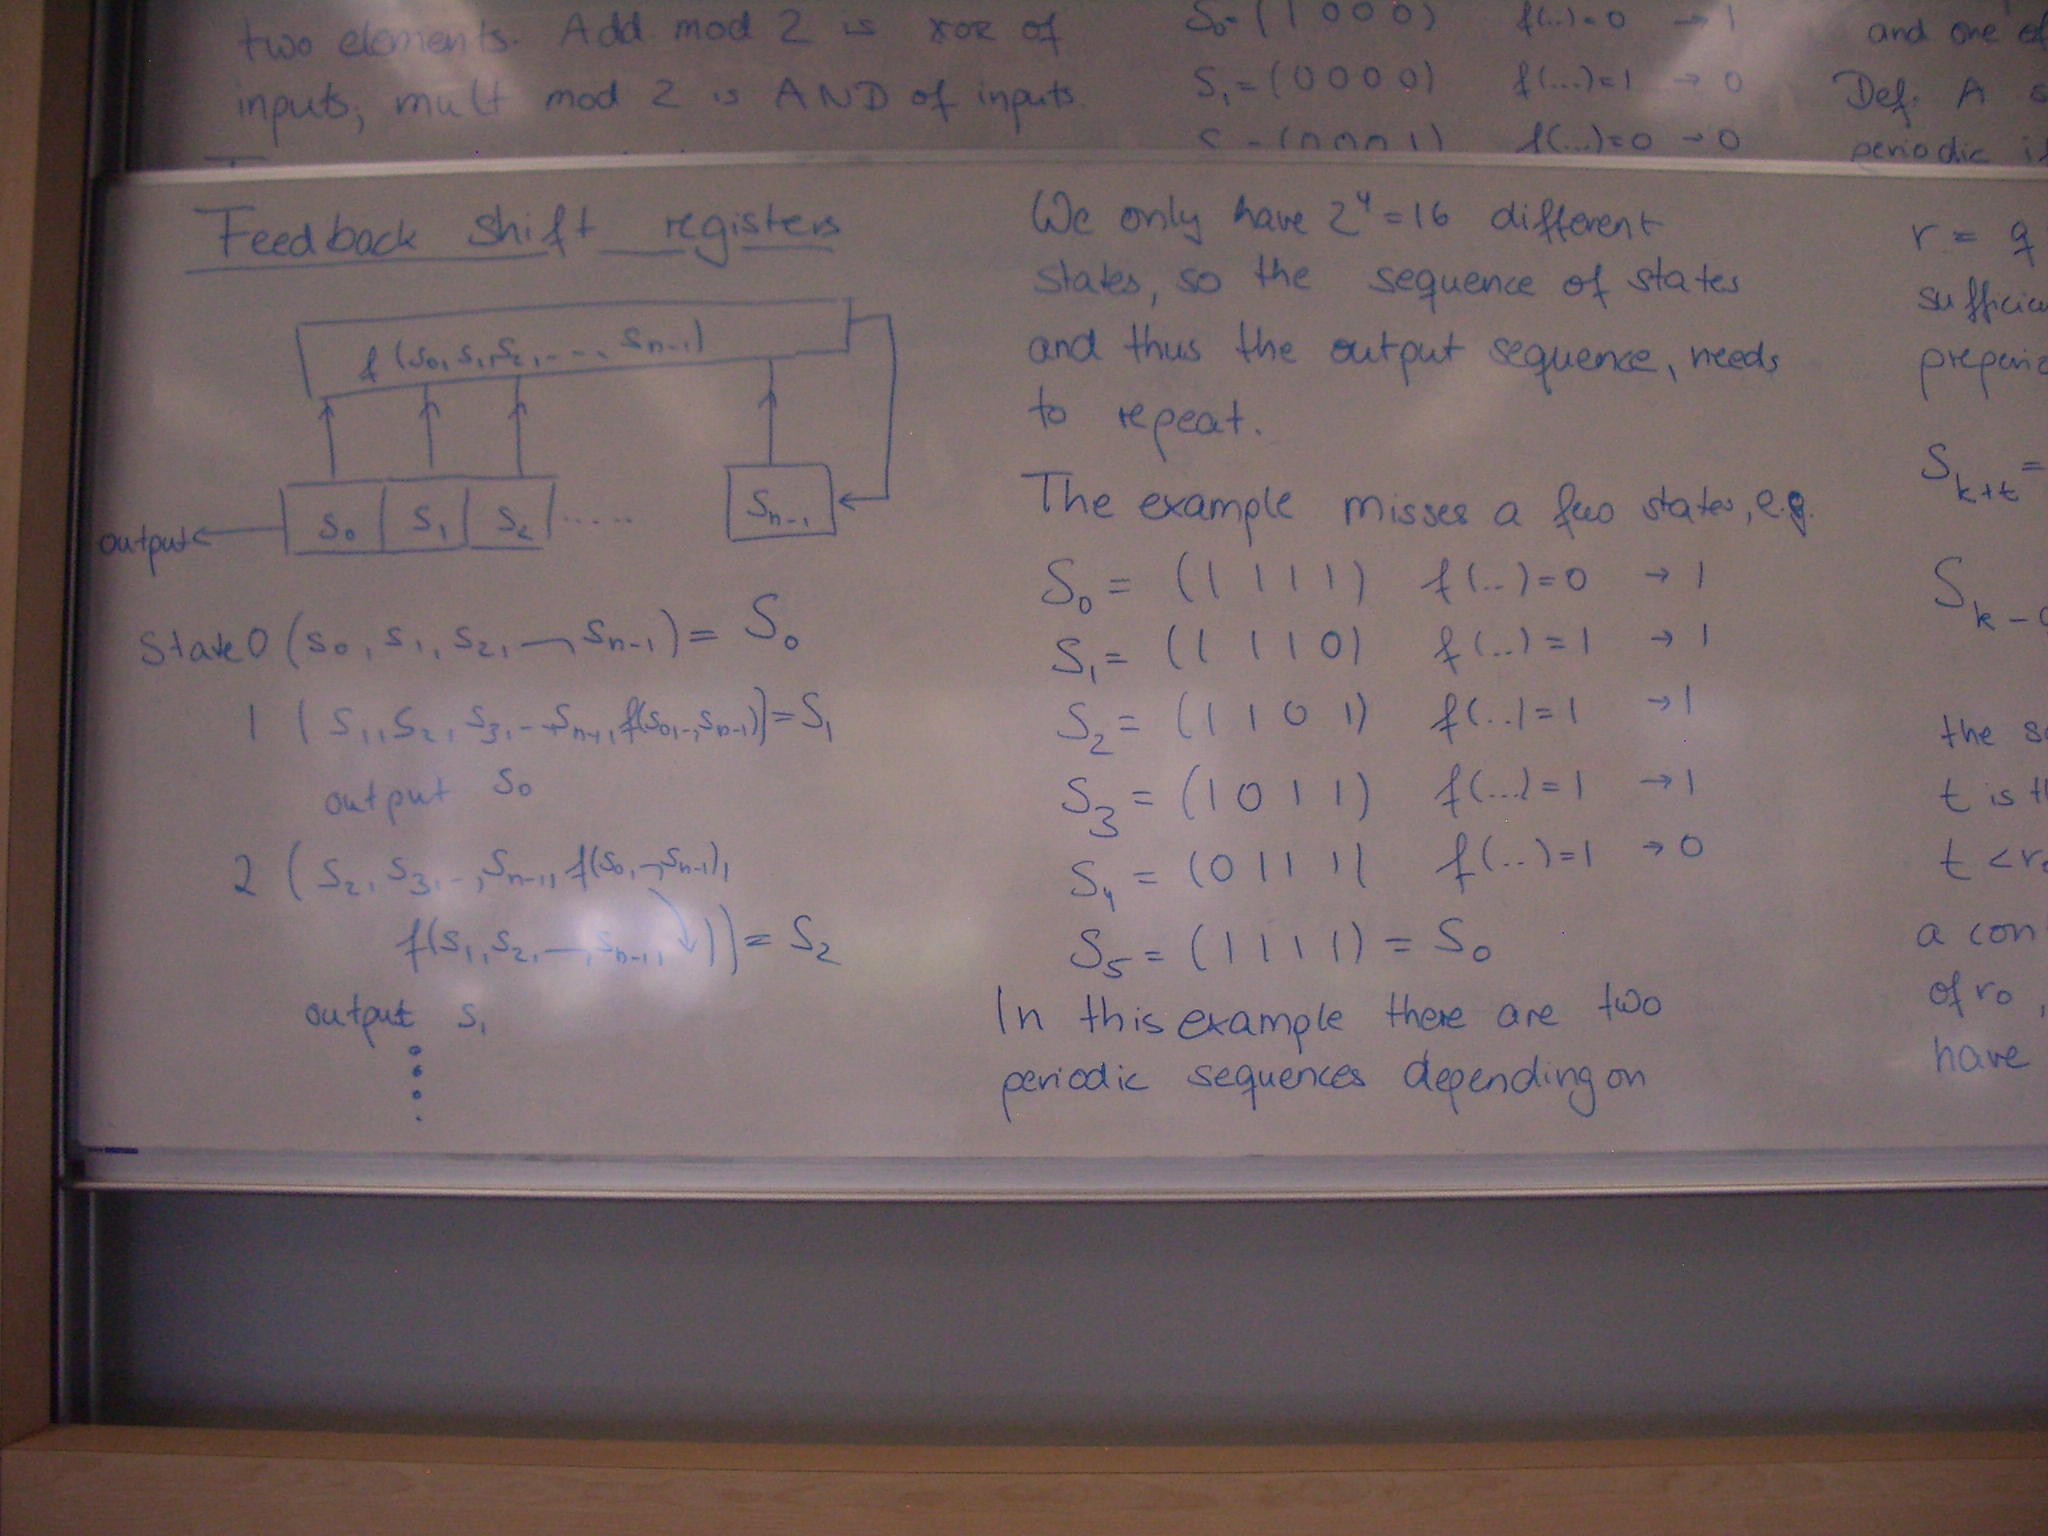 two elements. Add mod 2 is xor of
inputs, mult mod 2 is AND of inputs.
S₀=(1 0 0 0) f(..)=0 → 1
S₁=(0 0 0 0) f(...)=1 → 0
(0 0 0 1) f(...)=0 → 0
and one
Def. A
periodic
Feedback shift registers
f(s₀, s₁, s₂, ..., sₙ₋₁)
output ← s₀ s₁ s₂ ..... sₙ₋₁
State 0 (s₀, s₁, s₂, —, sₙ₋₁) = S₀
1 (s₁, s₂, s₃, .., sₙ₋₁, f(s₀,..,sₙ₋₁)) = S₁
output s₀
2 (s₂, s₃, .., sₙ₋₁, f(s₀, —, sₙ₋₁),
f(s₁, s₂, —, sₙ₋₁, )) = S₂
output s₁
We only have 2⁴=16 different
states, so the sequence of states
and thus the output sequence, needs
to repeat.
The example misses a few states, e.g.
S₀ = (1 1 1 1) f(..)=0 → 1
S₁ = (1 1 1 0) f(..)=1 → 1
S₂ = (1 1 0 1) f(..)=1 → 1
S₃ = (1 0 1 1) f(...)=1 → 1
S₄ = (0 1 1 1) f(..)=1 → 0
S₅ = (1 1 1 1) = S₀
In this example there are two
periodic sequences depending on
r = q
S k+t =
S k-
the
t is
t < r
a con
of r₀,
have